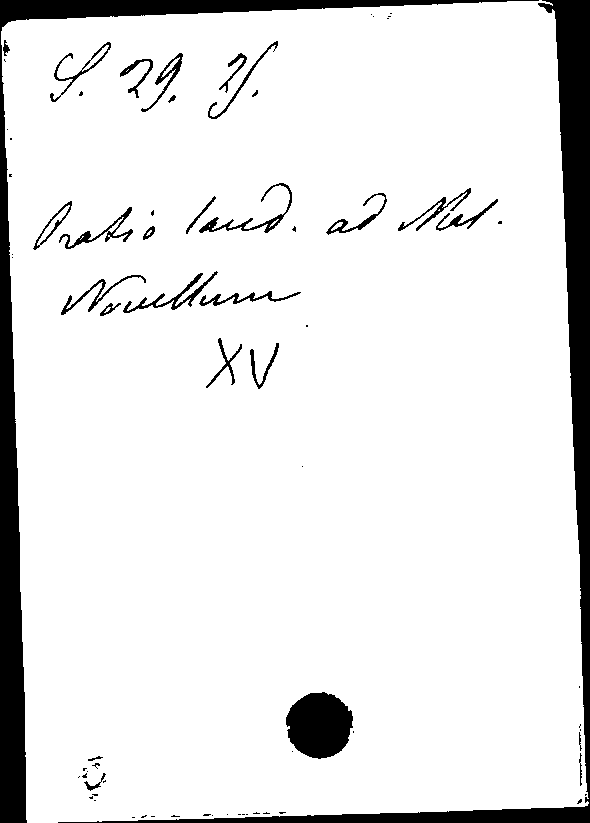 S. 29. 25.
Oratio laud. ad Mal.
Novellum
XV